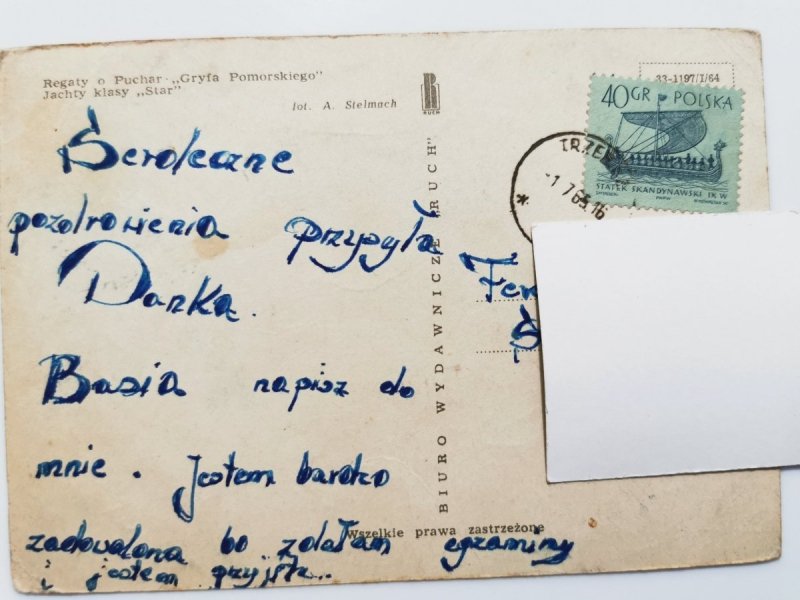 Regaty o Puchar „Gryfa Pomorskiego”
Jachty klasy „Star”
fot. A. Stelmach
RUCH
33-1197/I/64
40GR POLSKA
STATEK SKANDYNAWSKI IX W
TRZE
-1.7.65.16
BIURO WYDAWNICZE „RUCH”
Serdeczne
pozdrowienia przysyła
Danka.
Basia napisz do
mnie. Jestem bardzo
zadowolona bo zdałam egzaminy
i jestem przyjęta..
Fer
Ś
Wszelkie prawa zastrzeżone